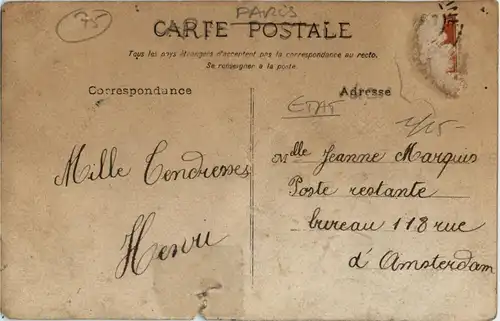 75
PARIS
CARTE POSTALE
Tous les pays étrangers n'acceptent pas la correspondance au recto.
Se renseigner à la poste.
Correspondance
Adresse
ETAT
Mille Tendresses
Henri
Mlle Jeanne Marquis
Poste restante
bureau 118 rue
d'Amsterdam